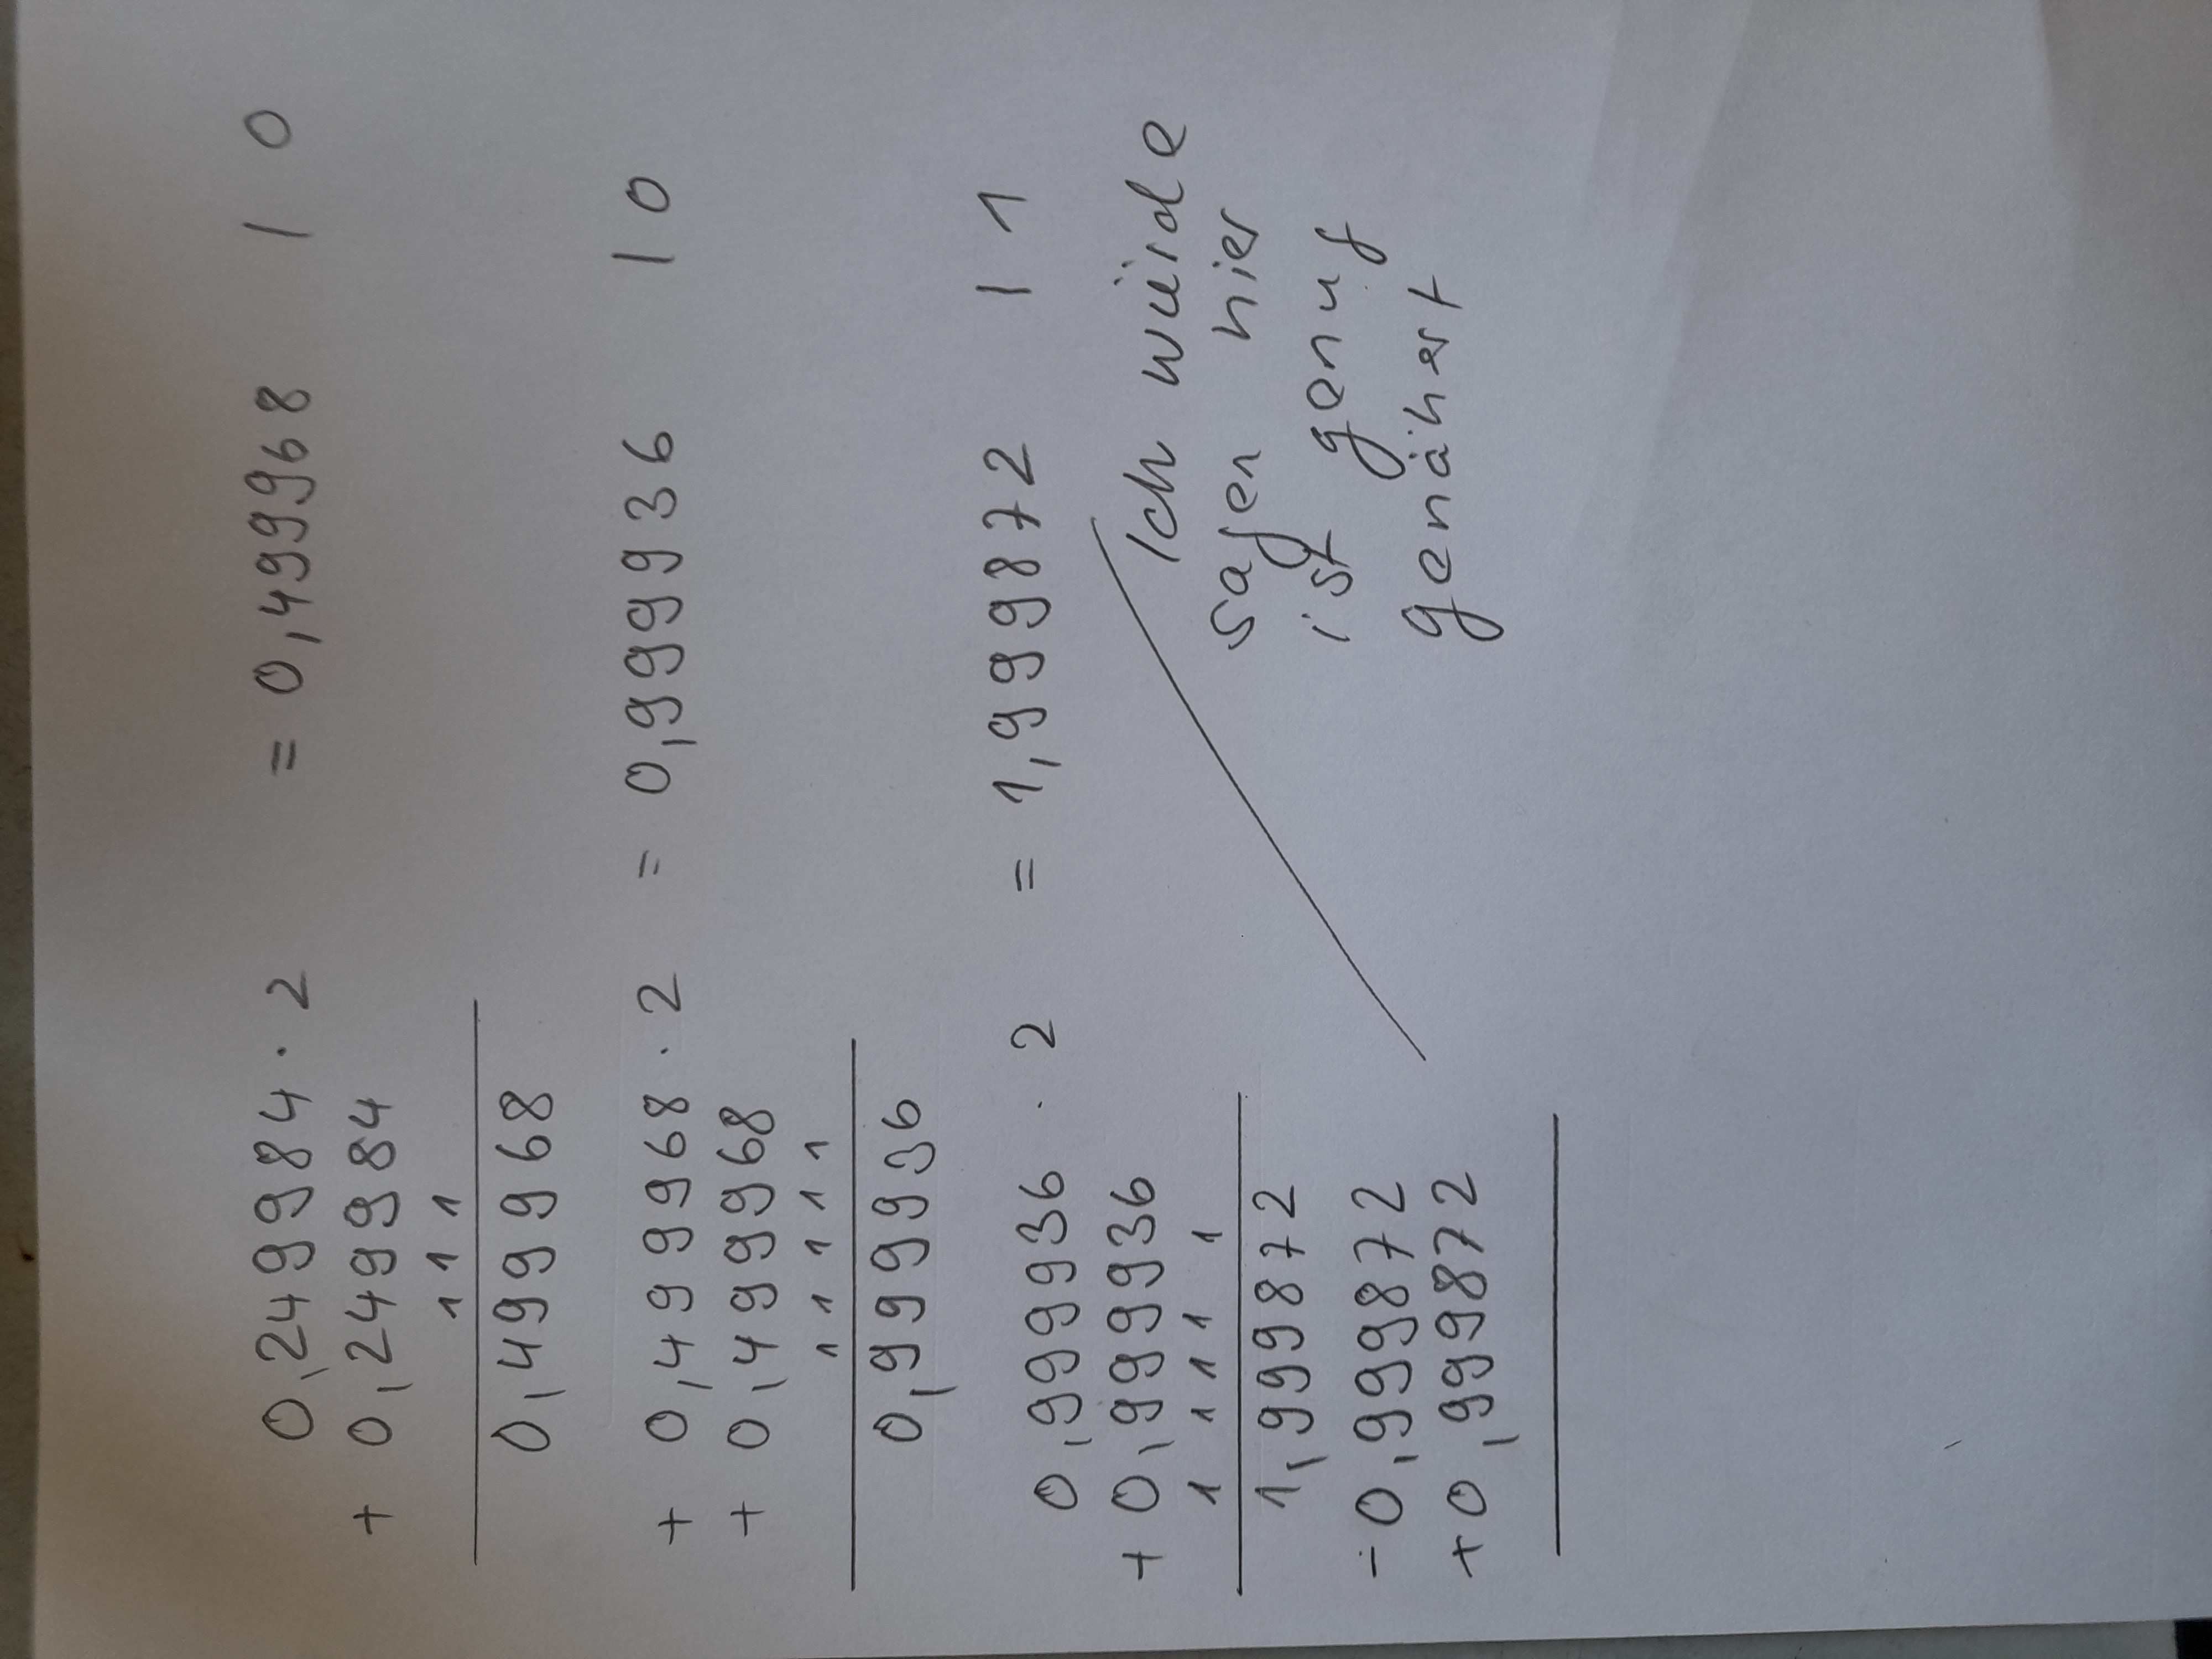 0,249984 · 2 = 0,499968 | 0
+ 0,249984
1 1 1
0,499968
+ 0,499968 · 2 = 0,999936 | 0
+ 0,499968
1 1 1 1 1
0,999936
0,999936 · 2 = 1,999872 | 1
+ 0,999936
1 1 1 1 1
1,999872
- 0,999872
+ 0,999872
Ich würde
sagen hier
ist genug
genähert